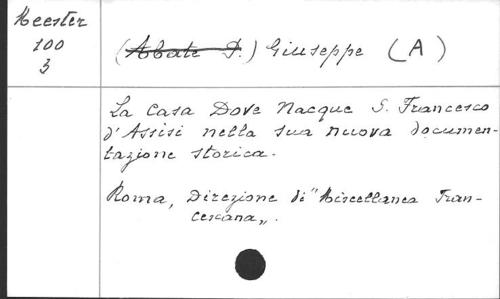 Meester
100
3
(Abate P.) Giuseppe (A)
La Casa Dove Nacque S. Francesco
d'Assisi nella sua nuova documen-
tazione storica.
Roma, Direzione di "Miscellanea Fran-
cescana„.